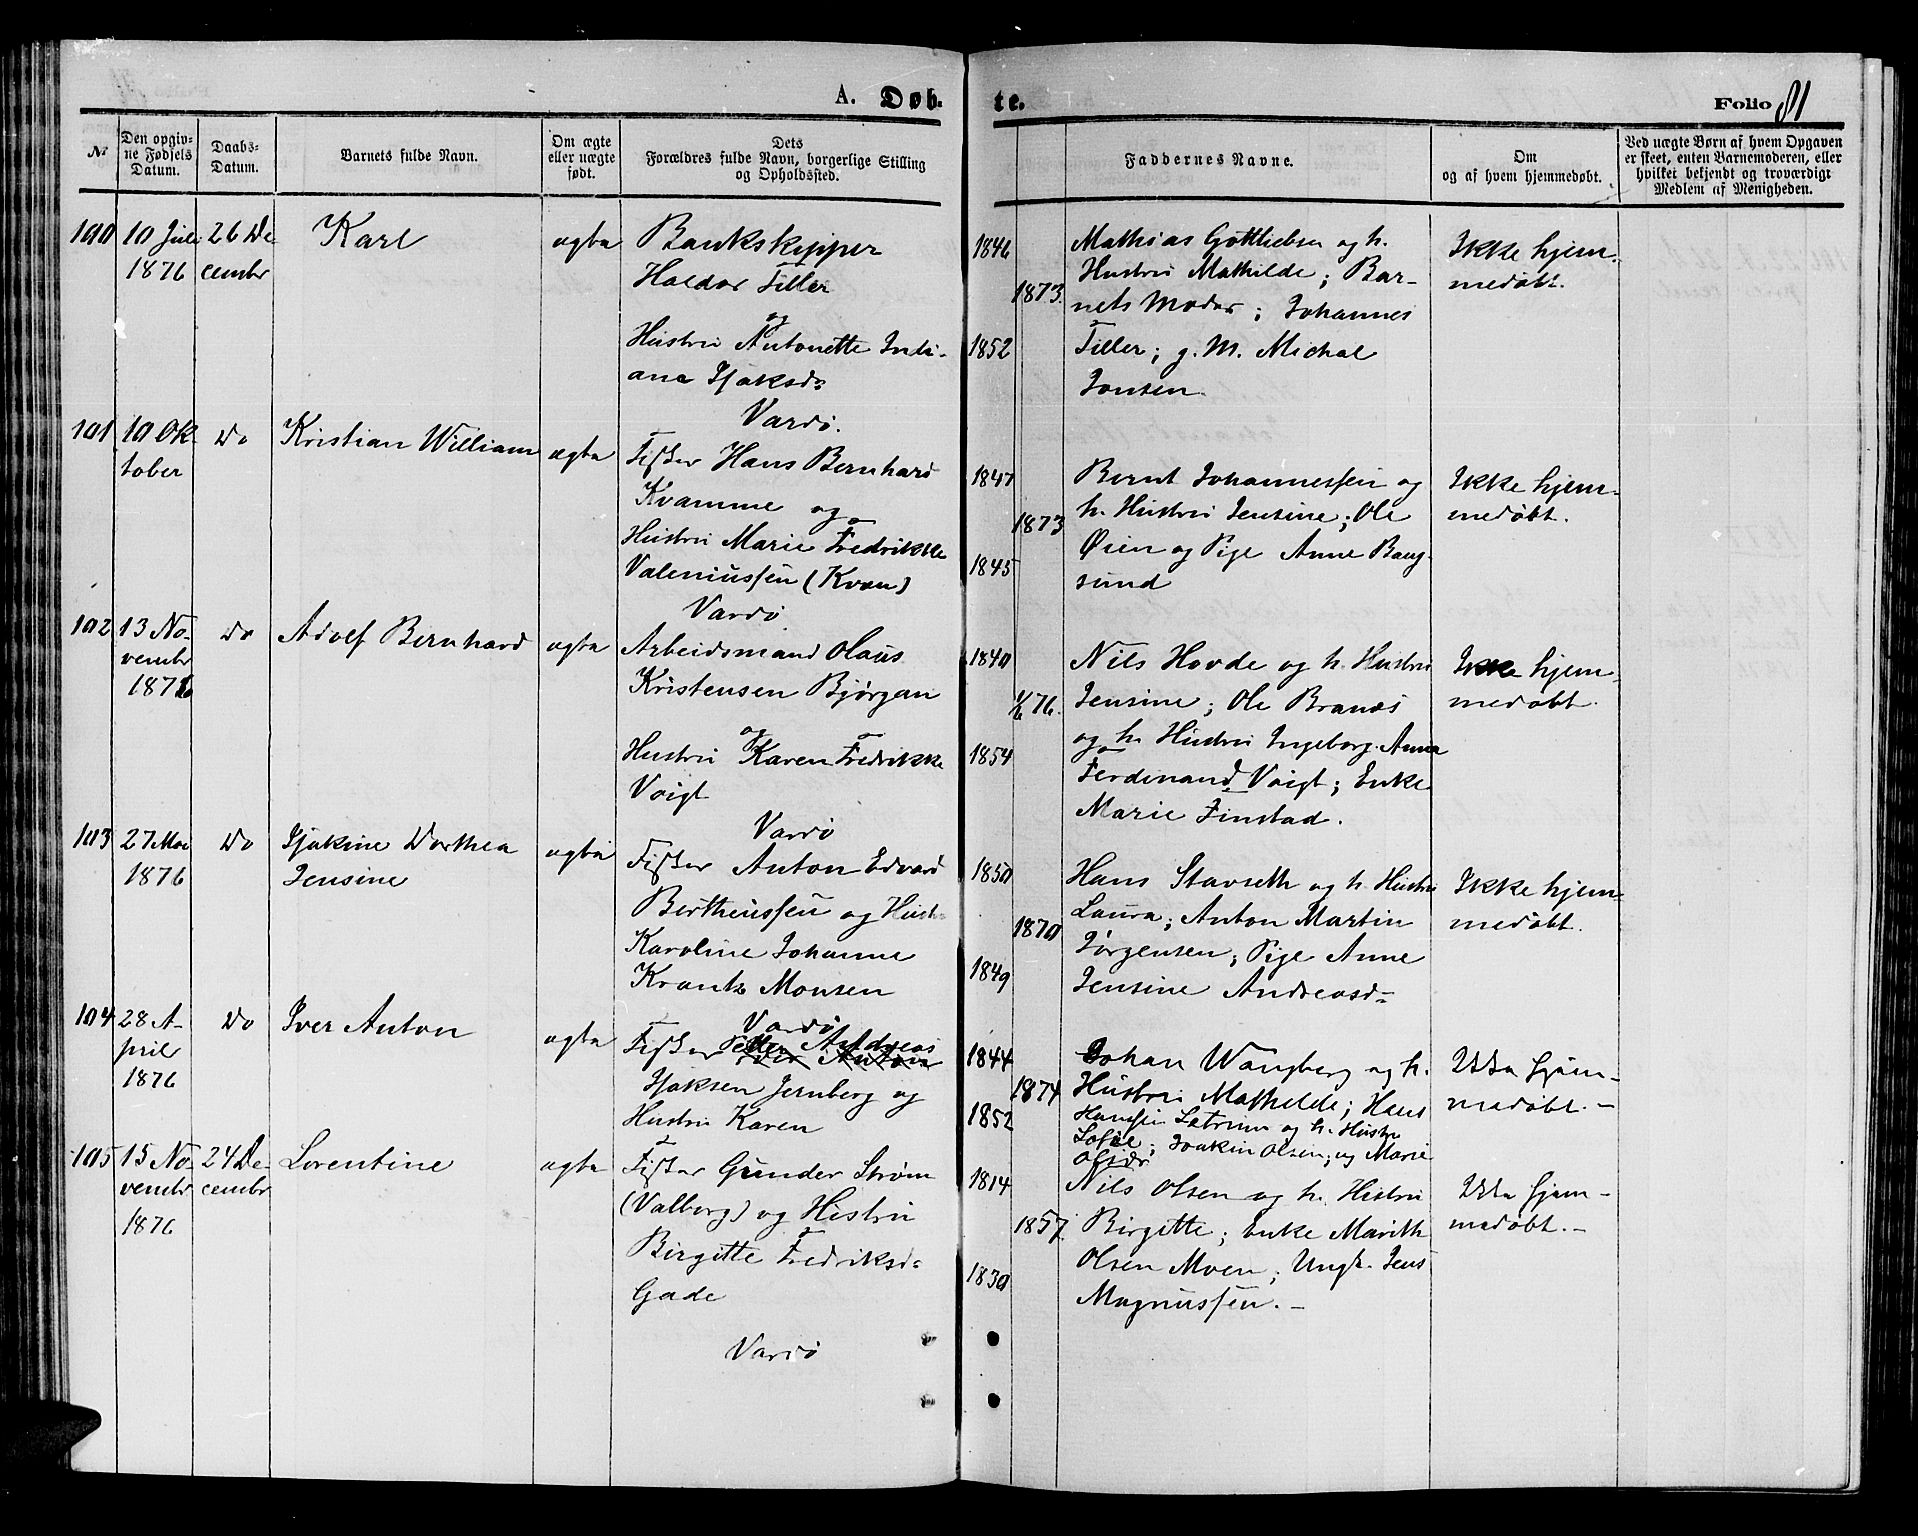 A. Døb-
te.
Folio 81
№
Den opgiv-
ne Fødsels
Datum.
Daabs-
Datum.
Barnets fulde Navn.
Om ægte
eller uægte
født.
Dets
Forældres fulde Navn, borgerlige Stilling
og Opholdssted.
Faddernes Navne.
Om
og af hvem hjemmedøbt.
Ved uægte Børn af hvem Opgaven
er skeet, enten Barnemoderen, eller
hvilket bekjendt og troværdigt
Medlem af Menigheden.
100
10 Juli
1876
26 De
cembr
Karl
ægte
Bankskipper
Haldor Tiller
og
Hustru Antonette Indi-
ana Isaksd:
Vardø.
1846
1873
1852
Mathias Gottliebsen og h.
Hustru Mathilde; Bar-
nets Moder; Johannes
Tiller; g. M. Michal
Jonsen.
Ikke hjem-
medøbt.
101
10 Ok
tober
Do
Kristian William
ægte
Fisker Hans Bernhard
Kvamme og
Hustru Marie Fredrikke
Valeniussen (Kvæn)
Vardø
1847
1873
1845
Bernt Johannessen og
h. Hustru Jensine; Ole
Øien og Pige Anne Baug-
sund
Ikke hjem-
medøbt.
102
13 No-
vembr
1876
Do
Adolf Bernhard
ægte
Arbeidsmand Olaus
Kristensen Bjørgan
og
Hustru Karen Fredrikke
Voigt
Vardø
1840
1/6 76.
1854
Nils Hovde og h. Hustru
Jensine; Ole Branæs
og h. Hustru Ingeborg Anna
Ferdinand Voigt; Enke
Marie Finstad.
Ikke hjem-
medøbt.
103
27 Mai
1876
Do
Isakine Dorthea
Jensine
ægte
Fisker Anton Edvard
Bertheussen og Hust:
Karoline Johanne
Krantz Monsen
Vardø
1850
1870
1849
Hans Stavseth og h. Hustru
Laura; Anton Martin
Jørgensen; Pige Anne
Jensine Andreasd:
Ikke hjem-
medøbt.
104
28 A-
pril
1876
Do
Iver Anton
ægte
Peder Andreas
Fisker Iver Anton
Isaksen Jernberg og
Hustru Karen
1844
1874
1852
Johan Wangberg og h.
Hustru Mathilde; Hans
Hansen Sætrum og h. Hustru
Sofie; Joakim Olsen; og Marie
Ikke hjem-
medøbt. -
105
15 No-
vembr
1876
24 De-
cembr
Lorentine
ægte
Fisker Gunder Strøm
(Valborg) og Hustru
Birgitte Fredriksd:
Gade
Vardø
1814
1857.
1830
Nils Olsen og h. Hustru
Birgitte; Enke Marith
Olsen Moen; Ungk. Jens
Magnussen. -
Ikke hjem-
medøbt. -